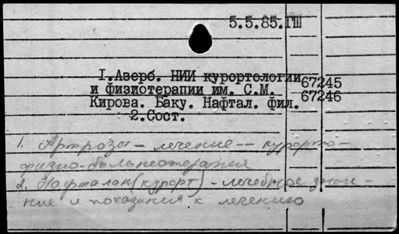 5.5.85.ГШ
I.Азерб. НИИ курортологии
и физиотерапии им. С.М.
Кирова. Баку. Нафтал. фил.
2.Сост.
67245
67246
1. Артрозы - лечение -- курорто-
физио-бальнеотерапия
2. Нафталан (курорт) - лечебное значе-
ние и показания к лечению